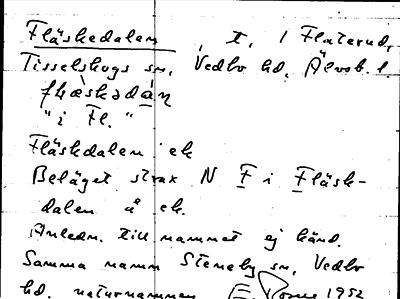 Fläskedalen, t, i Flaterud,
Tisselskogs sn, Vedbo hd, Älvsb. l.
flæskədàn
"i Fl."
Fläskdalen ek
Beläget strax N F i Fläsk-
dalen å ek.
Anledn. till namnet ej känd.
Samma namn Steneby sn, Vedbo
hd. naturnamnen 1952